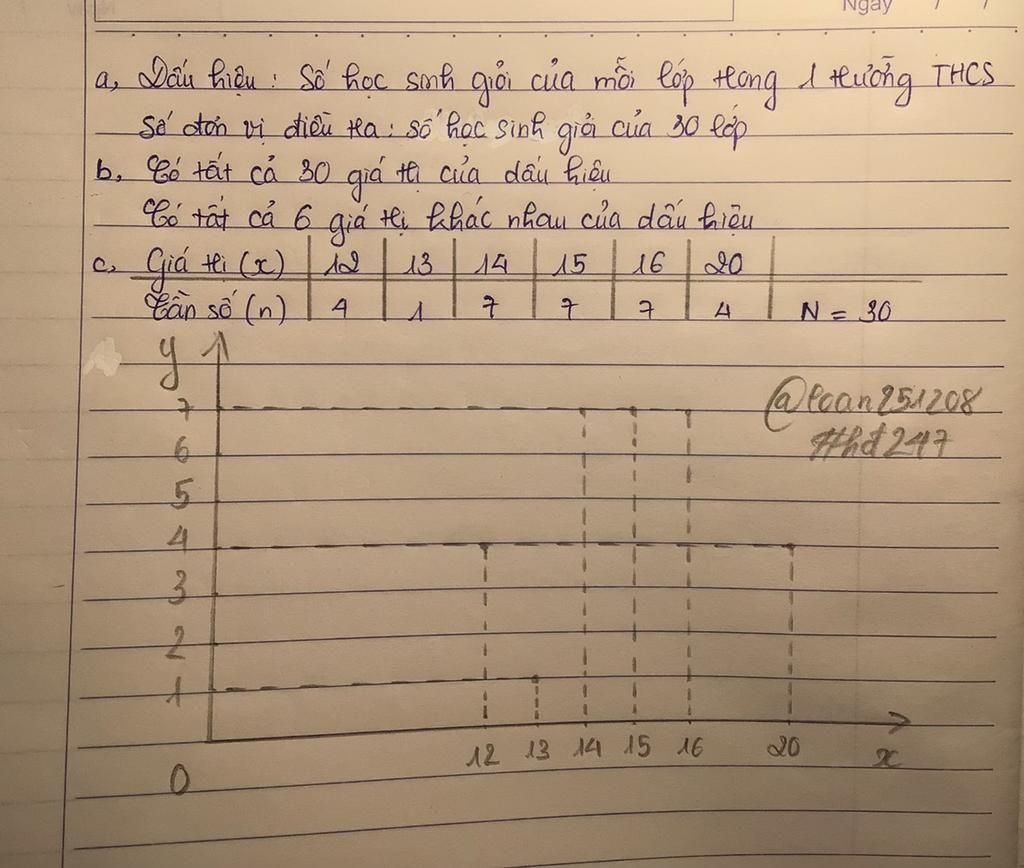 Ngày / /
a, Dấu hiệu : Số học sinh giỏi của mỗi lớp trong 1 trường THCS
Số đơn vị điều tra : số học sinh giỏi của 30 lớp
b, Có tất cả 30 giá trị của dấu hiệu
Có tất cả 6 giá trị khác nhau của dấu hiệu
c, Giá trị (x) 12 13 14 15 16 20
Tần số (n) 4 1 7 7 7 4 N = 30
y
7
@loan251208
6
#hd247
5
4
3
2
1
12 13 14 15 16 20 x
0